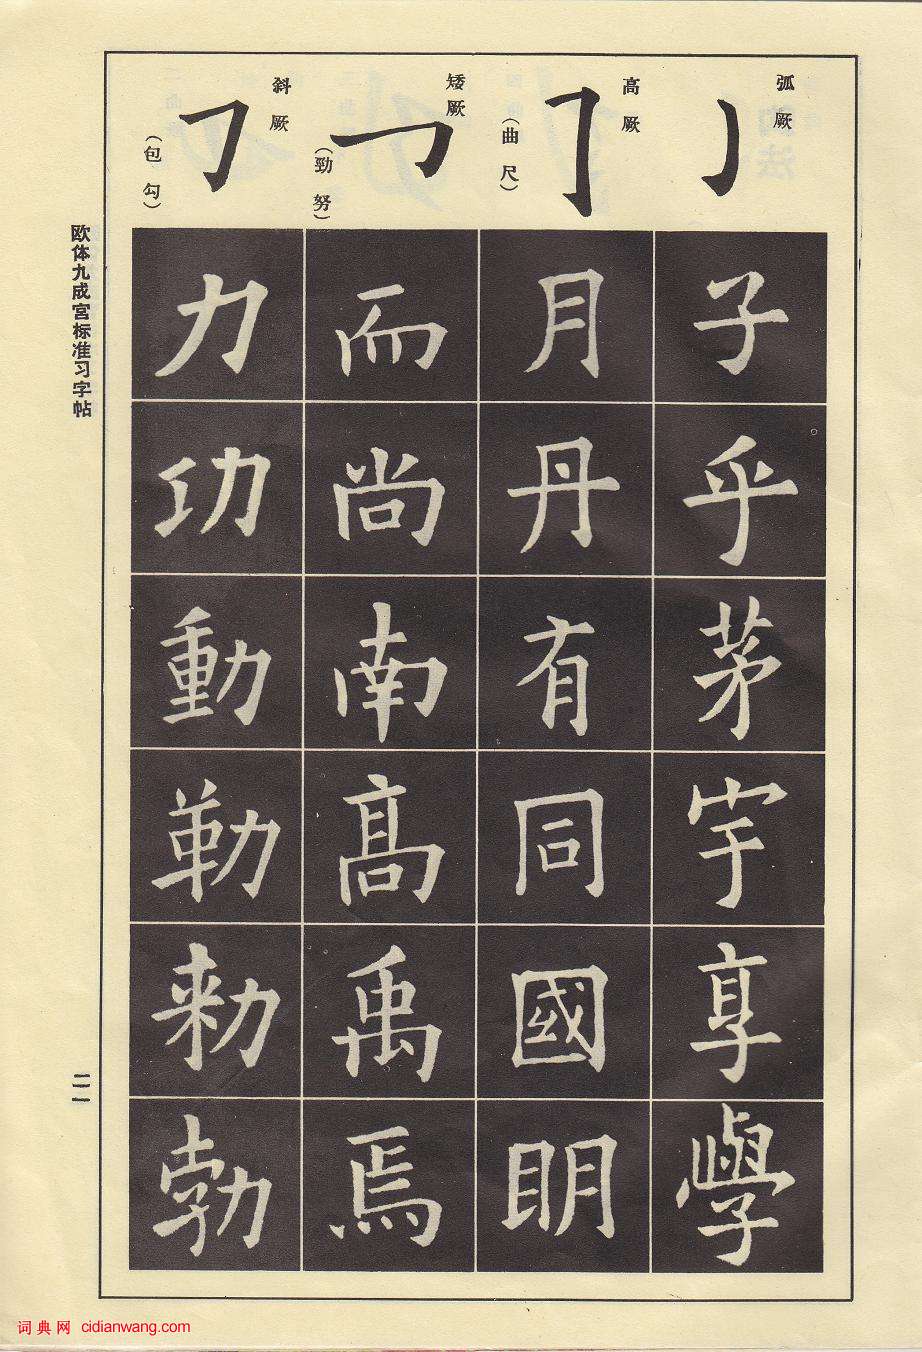 弧厥
高厥
（曲尺）
矮厥
（勁努）
斜厥
（包勾）
子乎茅宇享學
月丹有同國明
而尚南高禹焉
力功動勒勑勃
欧体九成宫标准习字帖
二一
词典网 cidianwang.com